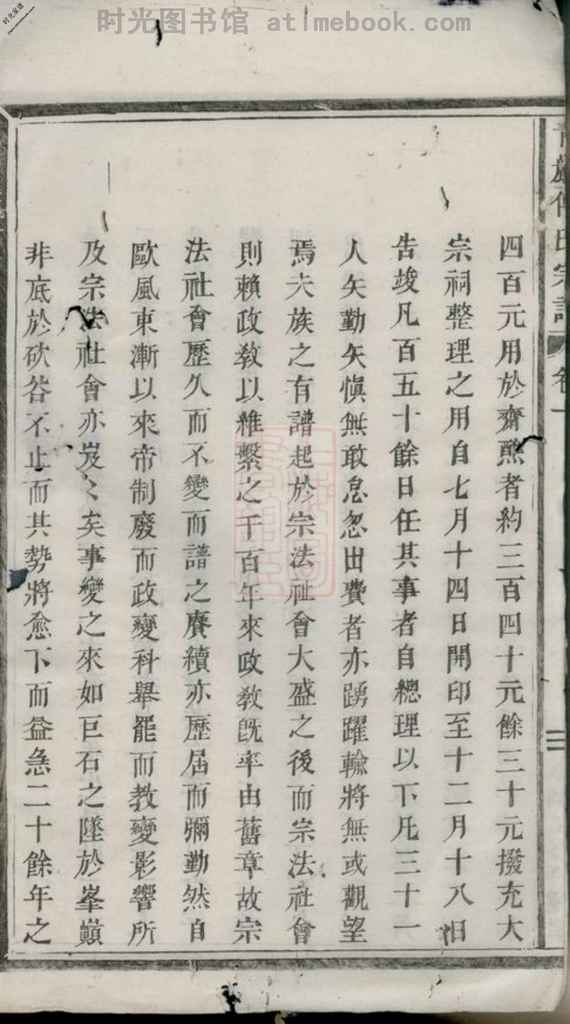 时光图书馆 atimebook.com
时光家谱
氏宗譜 卷一
四百元用於齋熏者約三百四十元餘三十元撥充大
宗祠整理之用自七月十四日開印至十二月十八日
告竣凡百五十餘日任其事者自總理以下凡三十一
人矢勤矢慎無敢怠忽出費者亦踴躍輸將無或觀望
焉夫族之有譜起於宗法社會大盛之後而宗法社會
則賴政教以維繫之千百年來政教旣率由舊章故宗
法社會歷久而不變而譜之賡續亦歷屆而彌勤然自
歐風東漸以來帝制廢而政變科舉罷而教變影響所
及宗法社會亦岌〻矣事變之來如巨石之墜於峯巔
非底於砍谷不止而其勢將愈下而益急二十餘年之